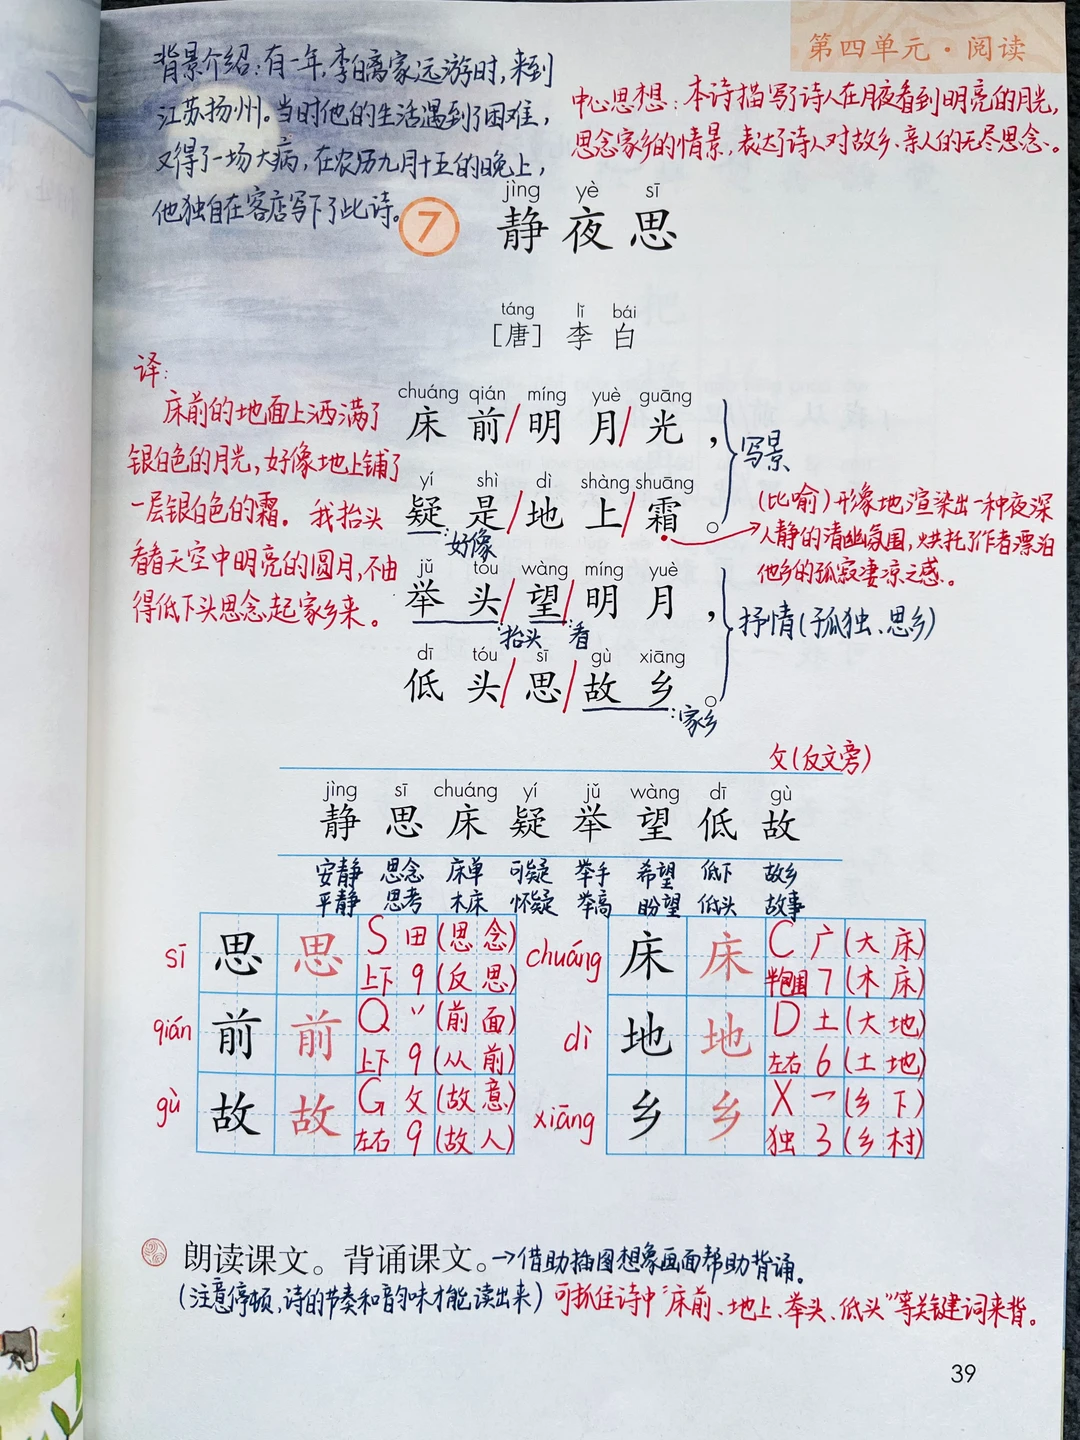 第四单元·阅读
背景介绍:有一年,李白离家远游时,来到
江苏扬州。当时他的生活遇到了困难,
又得了一场大病,在农历九月十五的晚上,
他独自在客店写下了此诗。
中心思想:本诗描写了诗人在月夜看到明亮的月光,
思念家乡的情景,表达了诗人对故乡、亲人的无尽思念。
jìng yè sī
7 静夜思
táng lǐ bái
[唐] 李白
译:
床前的地面上洒满了
银白色的月光,好像地上铺了
一层银白色的霜。我抬头
看着天空中明亮的圆月,不由
得低下头思念起家乡来。
chuáng qián míng yuè guāng
床前/明月/光,
写景
yí shì dì shàng shuāng
疑是/地上/霜。
:好像
(比喻)形象地渲染出一种夜深
人静的清幽氛围,烘托了作者漂泊
他乡的孤寂凄凉之感。
jǔ tóu wàng míng yuè
举头/望/明月,
:抬头 :看
抒情(孤独、思乡)
dī tóu sī gù xiāng
低头/思/故乡。
:家乡
攵(反文旁)
jìng sī chuáng yí jǔ wàng dī gù
静 思 床 疑 举 望 低 故
安静 思念 床单 可疑 举手 希望 低下 故乡
平静 思考 木床 怀疑 举高 盼望 低头 故事
sī 思 思 S 田 (思念)
上下 9 (反思)
chuáng 床 床 C 广 (大床)
半包围 7 (木床)
qián 前 前 Q 丷 (前面)
上下 9 (从前)
dì 地 地 D 土 (大地)
左右 6 (土地)
gù 故 故 G 攵 (故意)
左右 9 (故人)
xiāng 乡 乡 X 乛 (乡下)
独 3 (乡村)
朗读课文。背诵课文。→借助插图想象画面帮助背诵。
(注意停顿,诗的节奏和韵味才能读出来)可抓住诗中“床前、地上、举头、低头”等关键词来背。
39